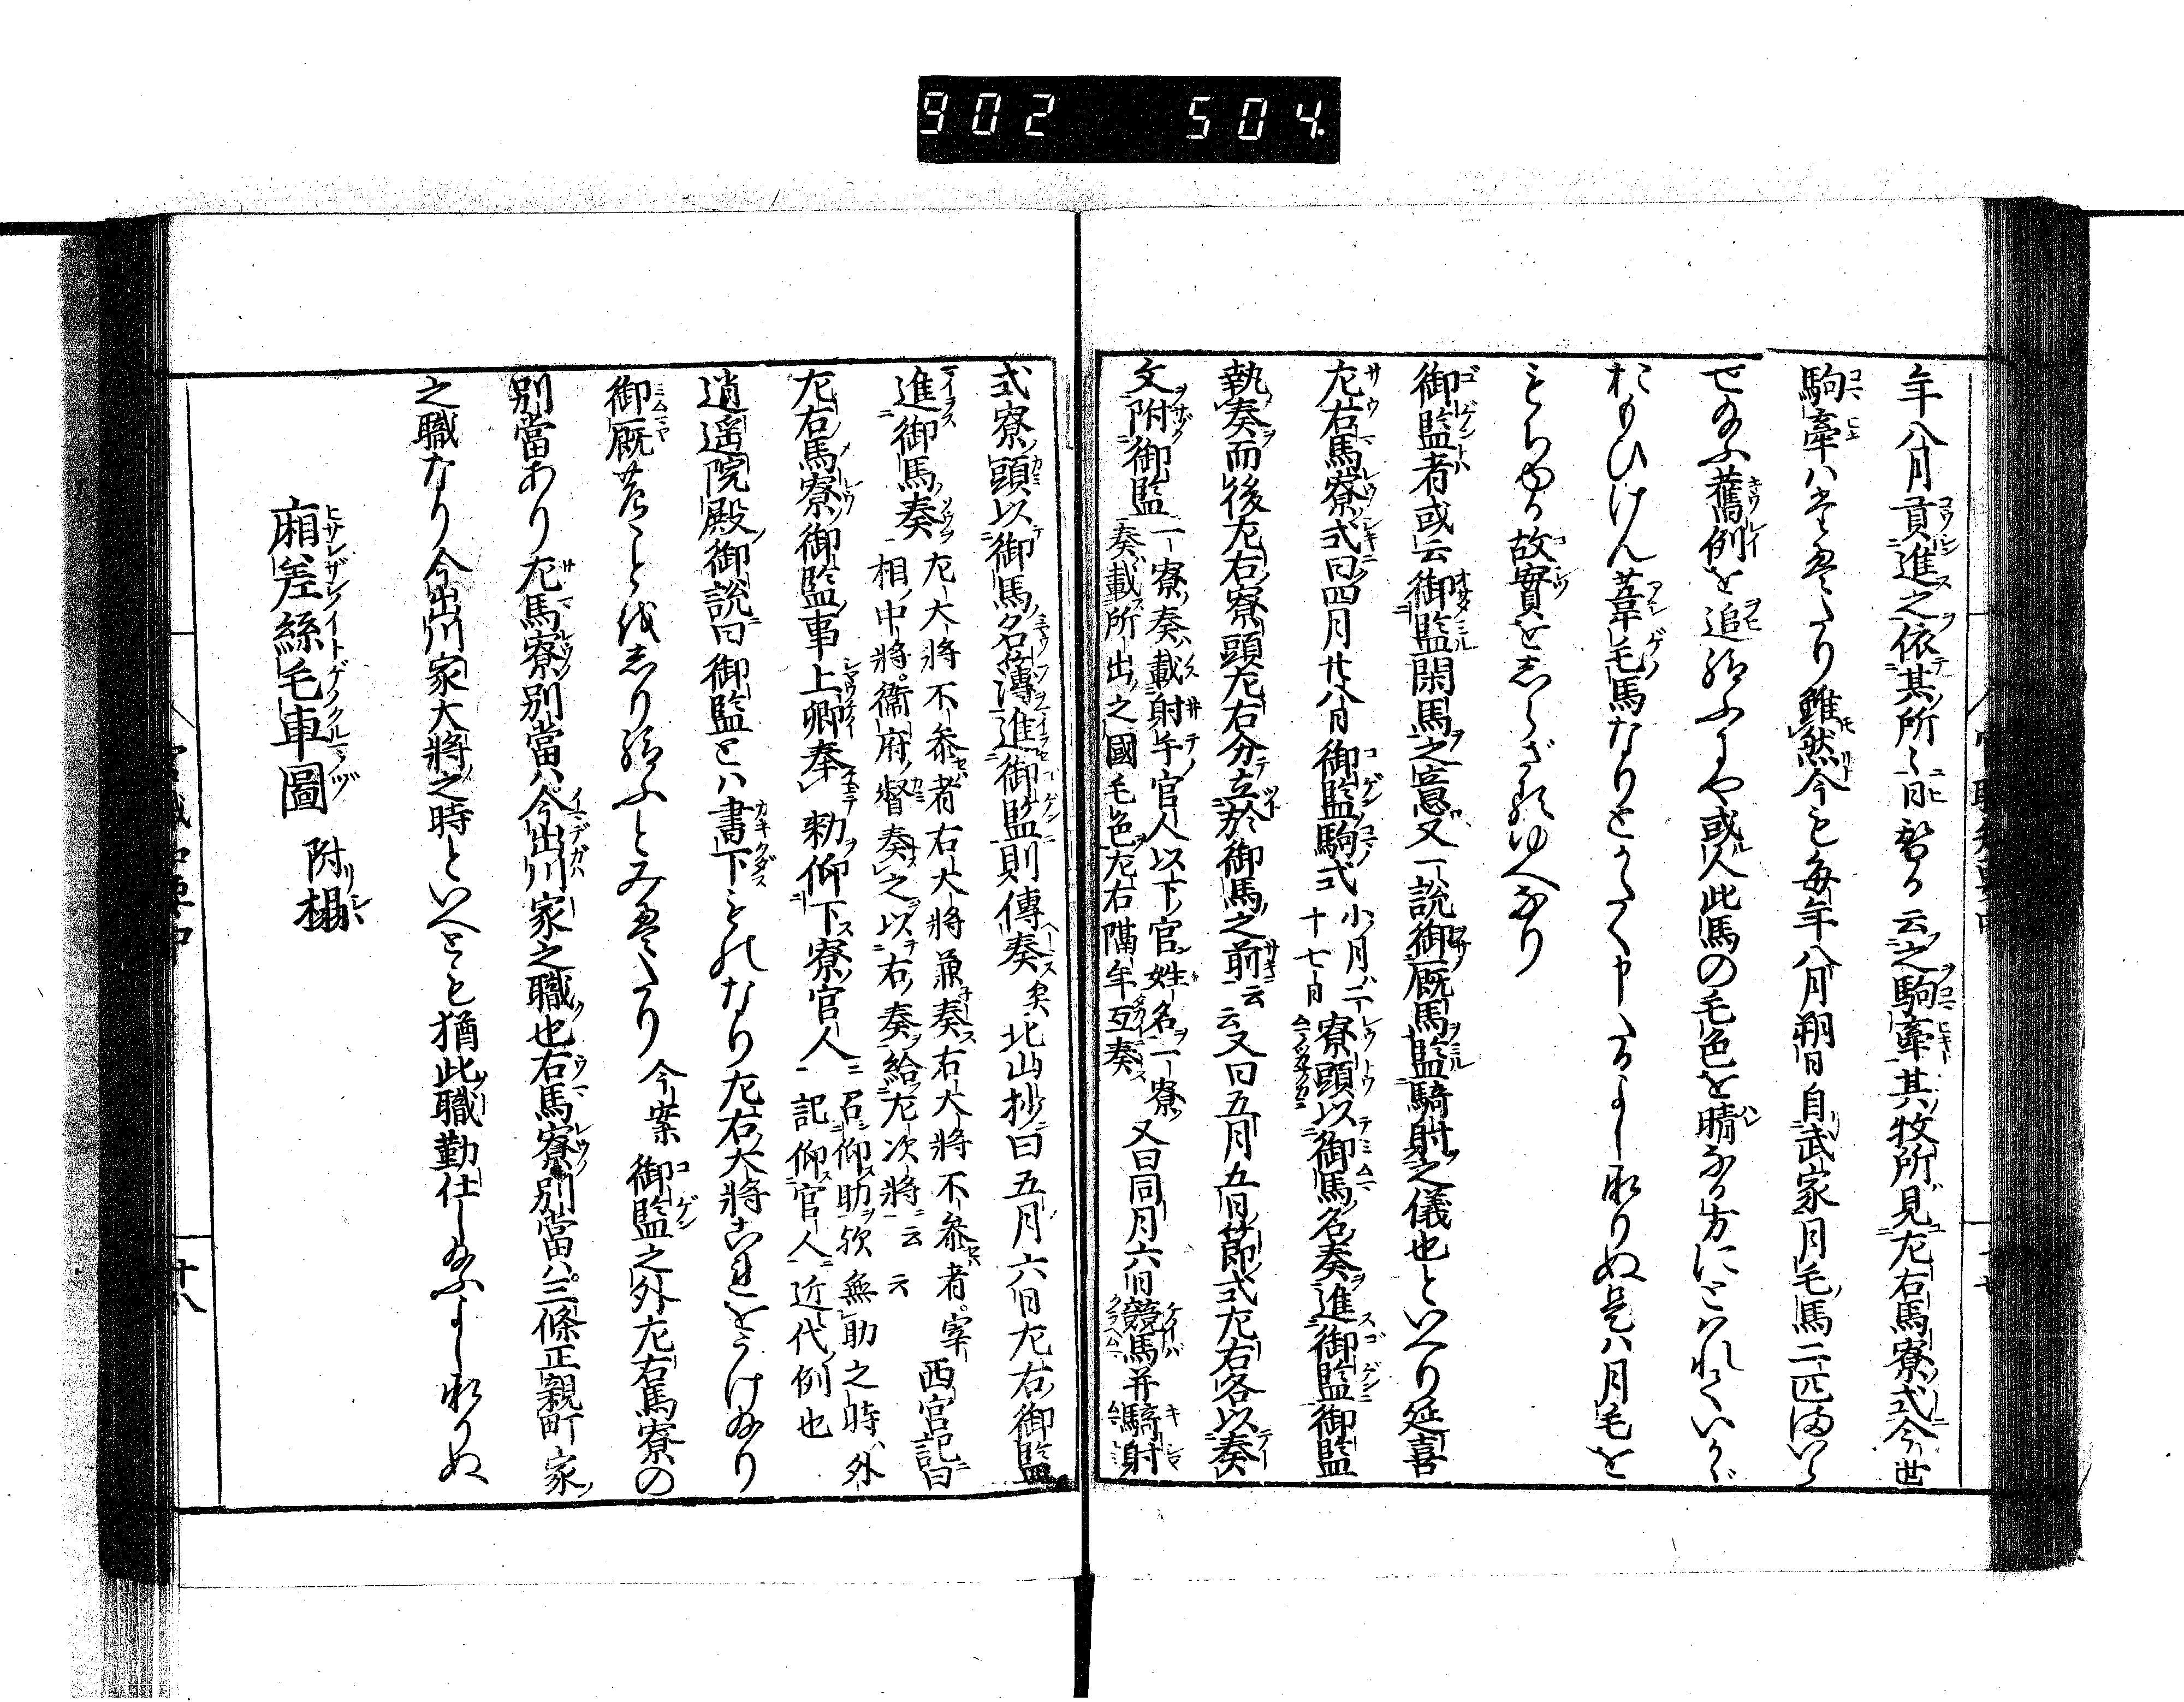 902 504.
年八月貢進之依其所々日替る云之駒牽其牧所見左右馬寮式今世
駒牽ハ絶たり雖然今も毎年八月朔日自武家月毛馬二匹まいら
せ給ふ舊例を追給ふにや或人此馬の毛色を晴なる方に
おもひけん葦毛馬なりとかく申たるよし承りぬ是ハ月毛を
もちゆる故實をしらざるゆへなり
御監者或云御監閑馬之意又一説御厩馬監騎射之儀也といへり延喜
左右馬寮式曰四月廿八日御監駒式
小月ハ二
十七日
寮頭以御馬名奏進御監御監
執奏而後左右寮頭左右分立於御馬之前云云又曰五月五日節式左右各以奏
文附御監
一寮奏載射手官人以下官姓名一寮
奏載所出之國毛色左右隔年互奏
又曰同月六日競馬并騎射
式寮頭以御馬名簿進御監則傳奏矣北山抄曰五月六日左右御監
進御馬奏
左大將不參者右大將兼奏右大將不參者宰
相中將衞府督奏之以右奏給左次將云云
西宮記曰
左右馬寮御監事上卿奉勅仰下寮官人
召仰助欤無助之時外
記仰官人近代例也
逍遥院殿御説曰御監とハ書下ものなり左右大將これをうけ給り
御厩のことをしり給ふとみえたり今案御監之外左右馬寮の
別當あり左馬寮別當ハ今出川家之職也右馬寮別當ハ三條正親町家
之職なり今出川家大將之時といへとも猶此職勤仕し給ふよし承りぬ
廂差絲毛車圖 附榻
十八